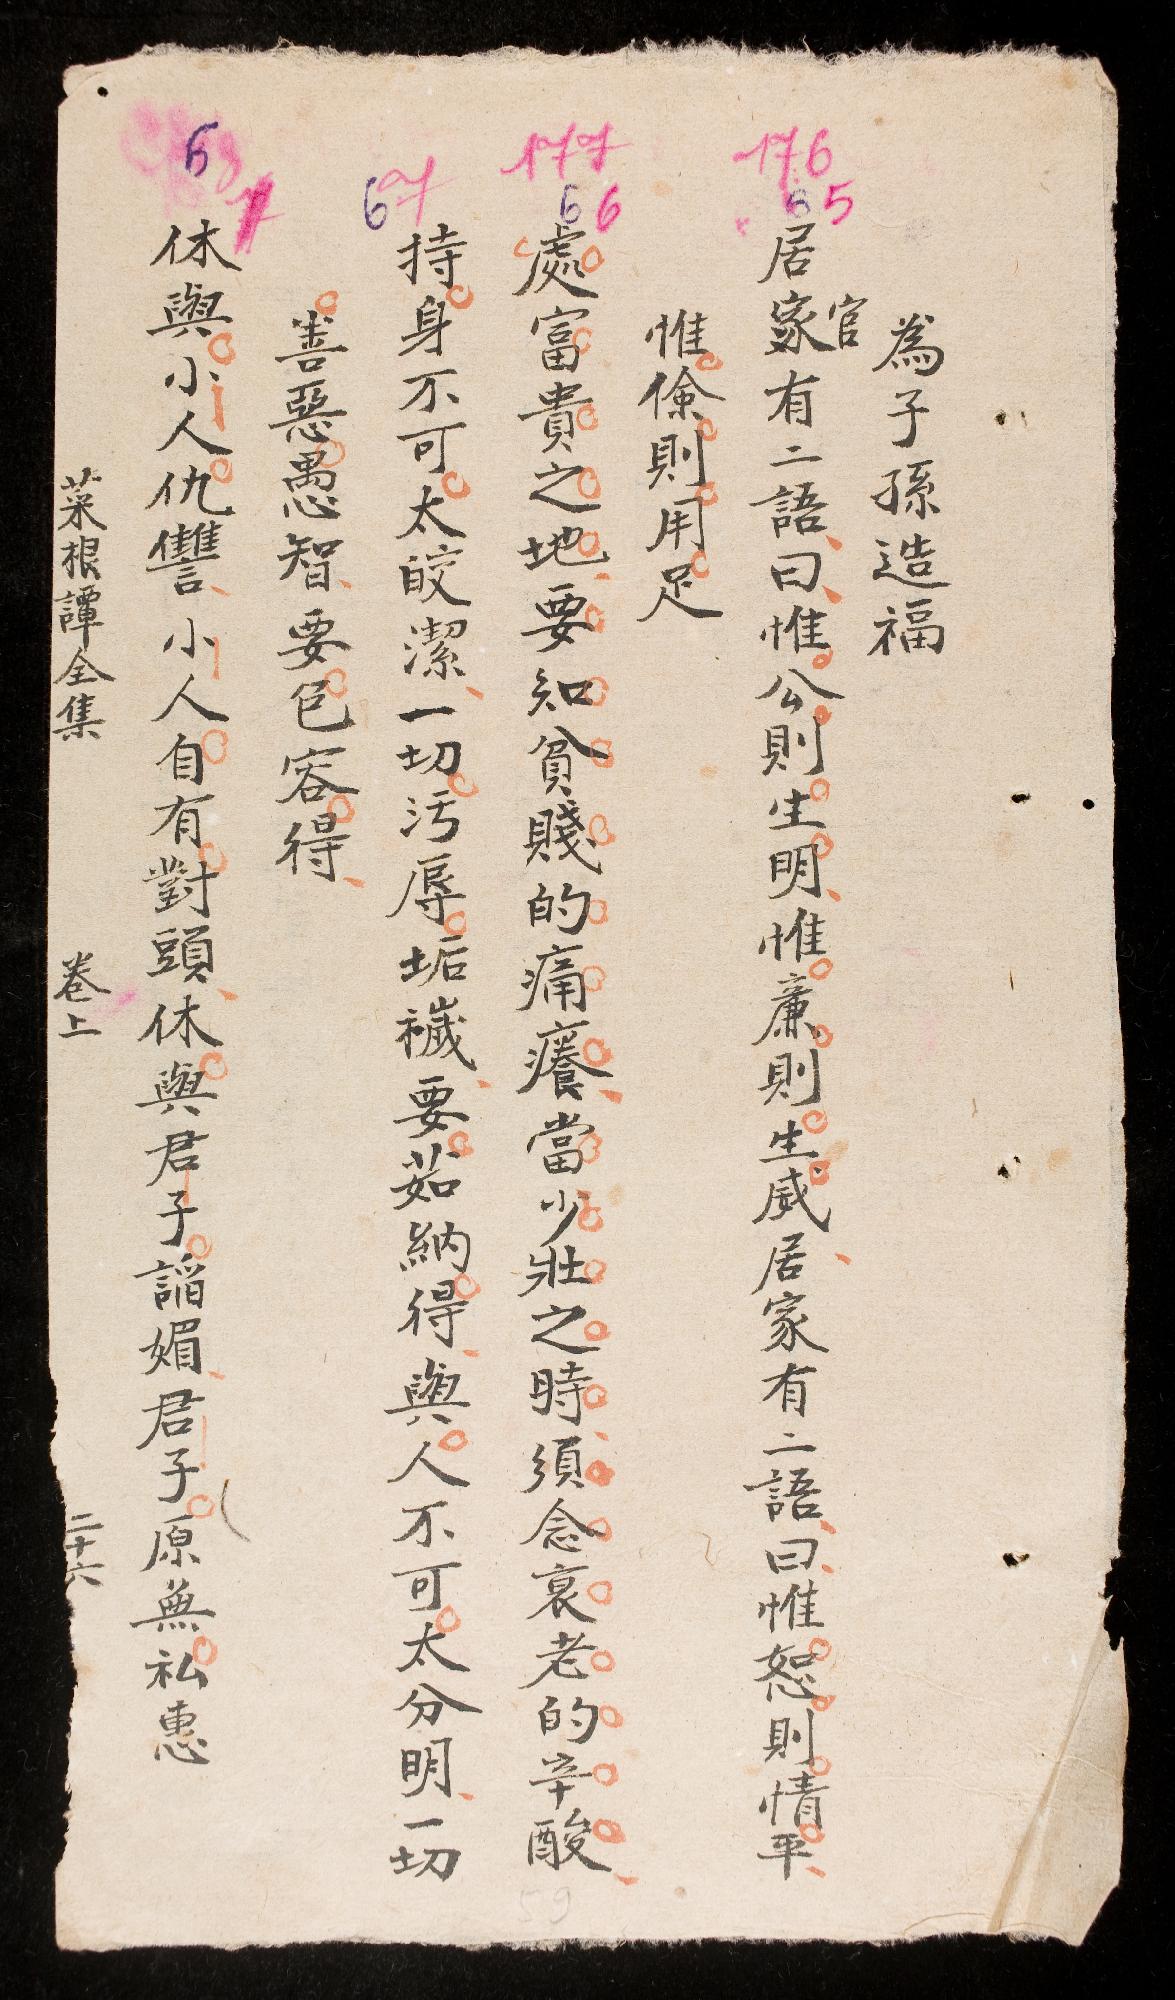 為子孫造福
176
65
居家有二語曰惟公則生明惟廉則生威居家有二語曰惟恕則情平
官
惟儉則用足
177
66
處富貴之地要知貧賤的痛癢當少壯之時須念衰老的辛酸
67
持身不可太皎潔一切污辱垢穢要茹納得與人不可太分明一切
善惡愚智要包容得
休與小人仇讐小人自有對頭休與君子謟媚君子原無私惠
菜根譚全集
卷上
二十六
59